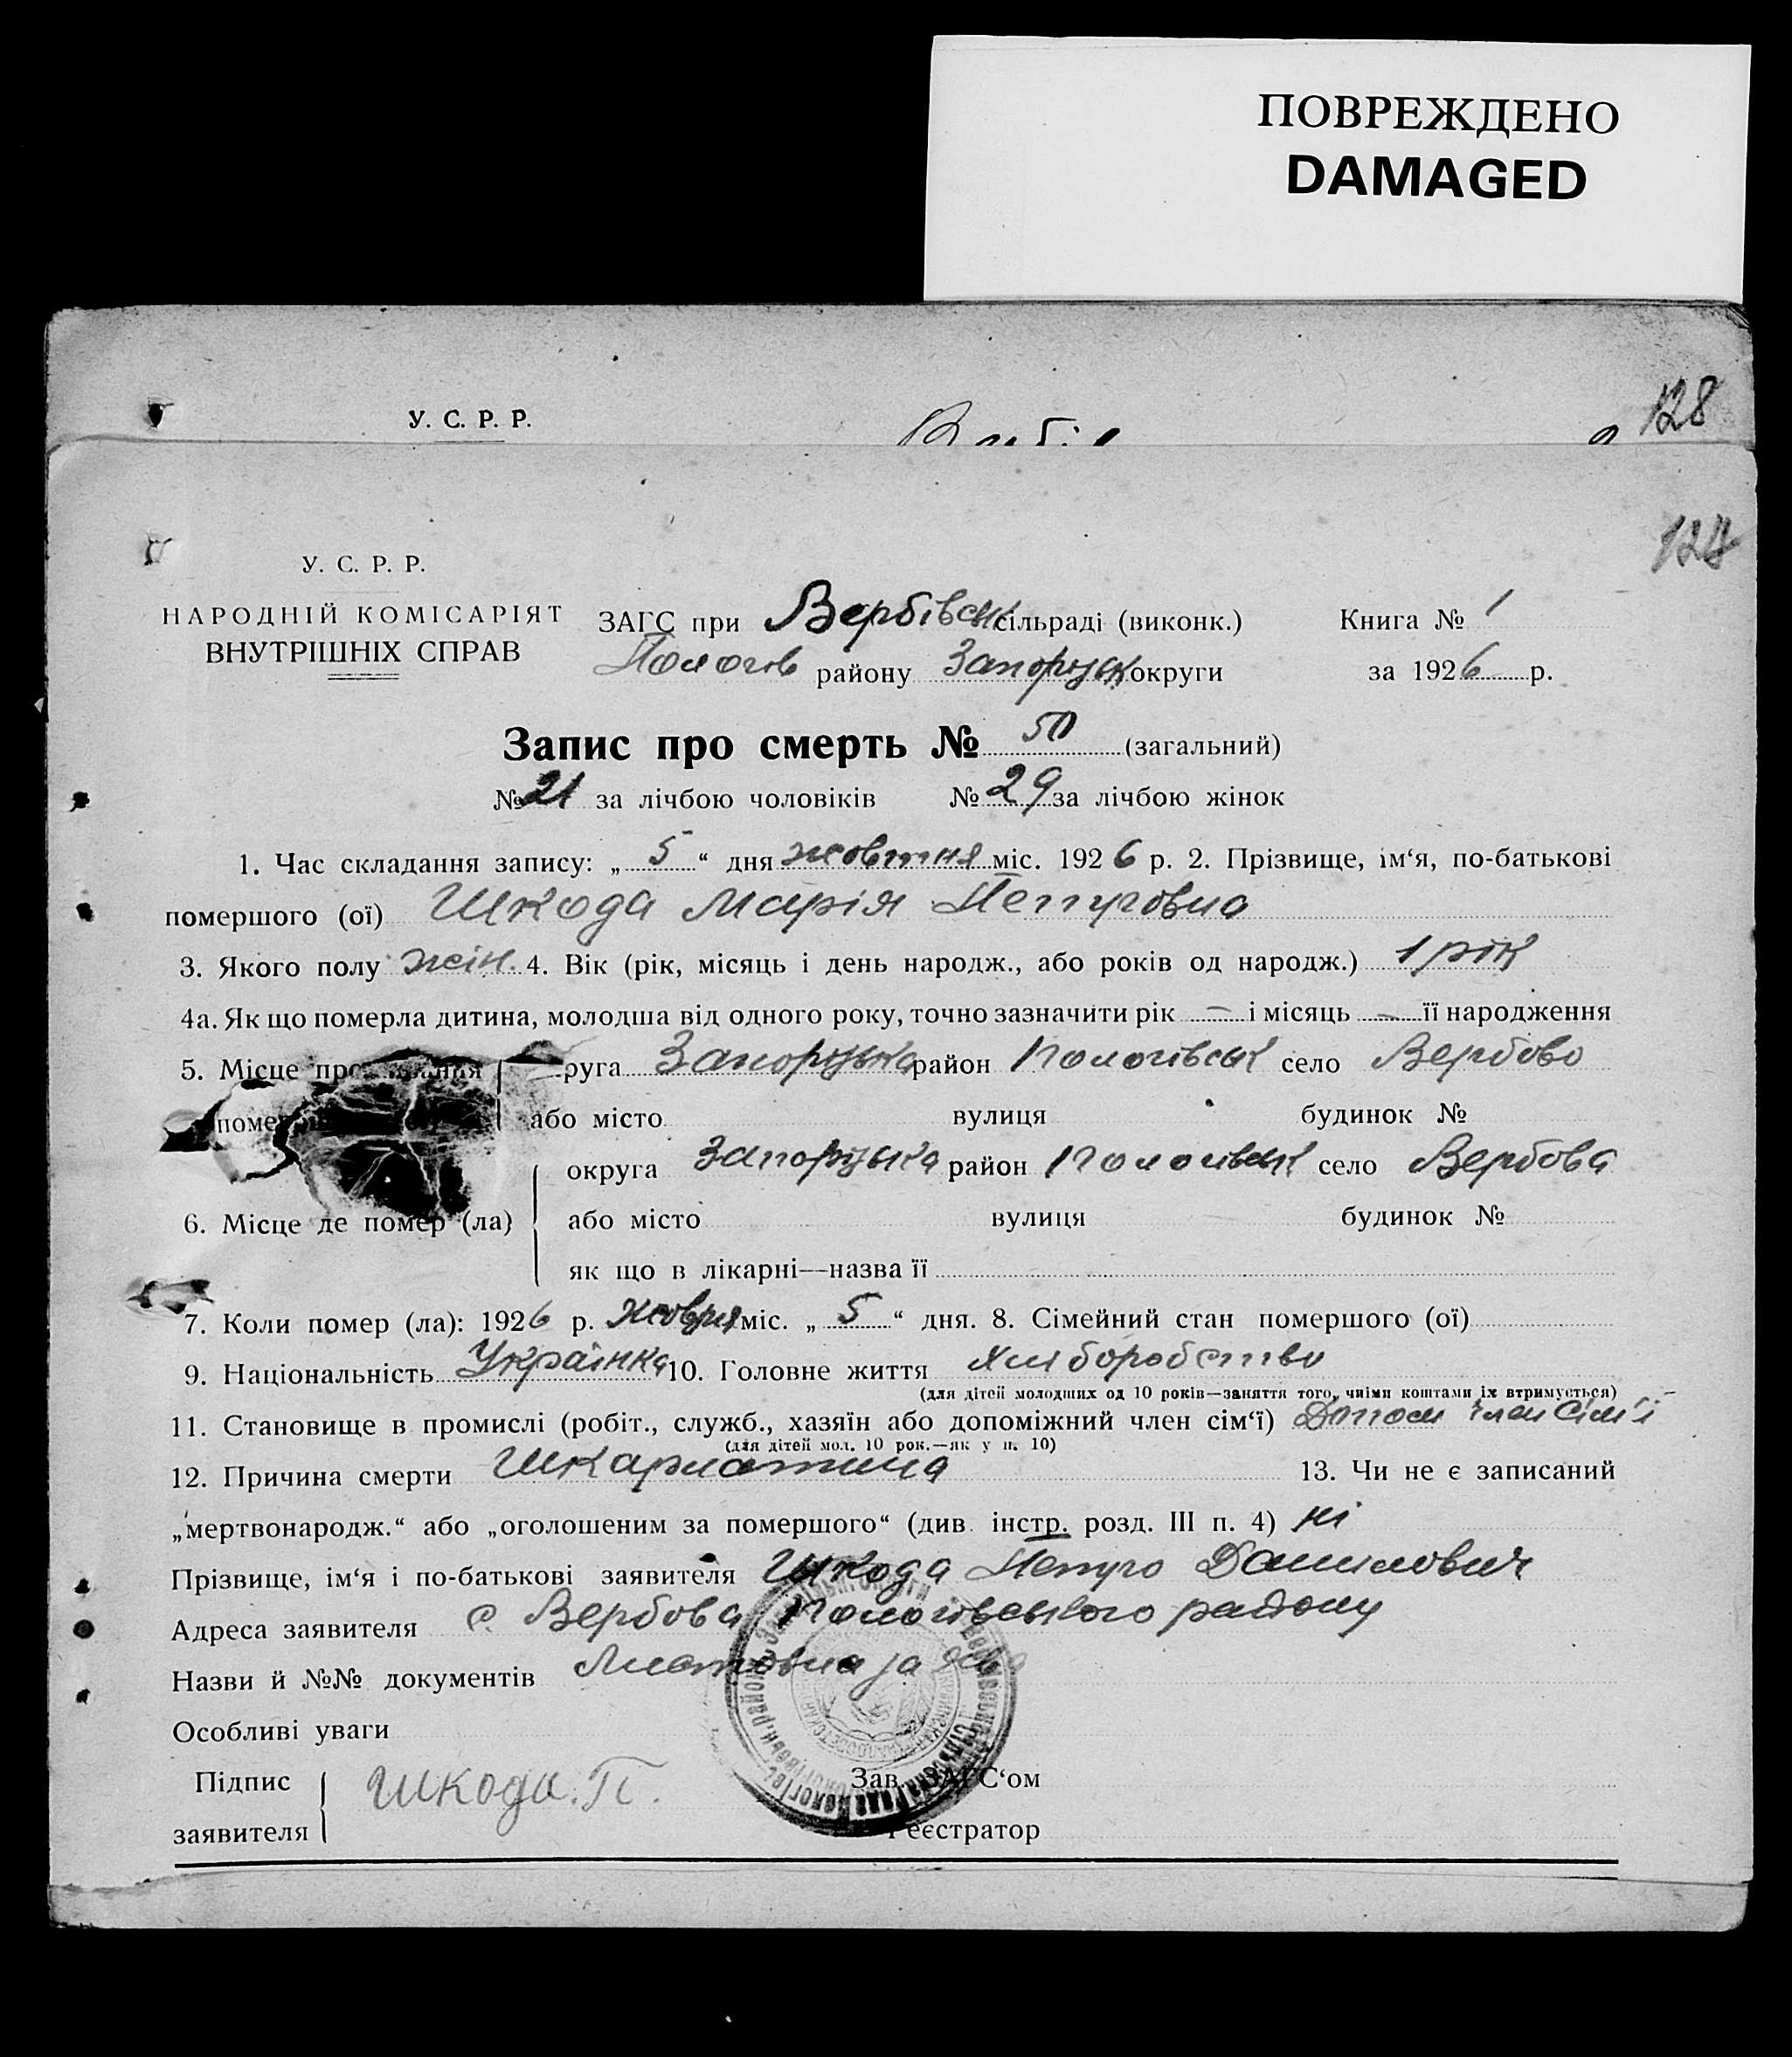 ПОВРЕЖДЕНО
DAMAGED
128
У. С. Р. Р.
У. С. Р. Р.
НАРОДНІЙ КОМІСАРІЯТ
ВНУТРІШНІХ СПРАВ
ЗАГС при Вербівськ сільраді (виконк.) Книга № 1
Пологів району Запорузьк округи за 1926 р.
Запис про смерть № 50 (загальний)
№ 21 за лічбою чоловіків № 29 за лічбою жінок
1. Час складання запису: „ 5 “ дня жовтня міс. 1926 р. 2. Прізвище, ім‘я, по-батькові
помершого (ої) Шкода Марія Петровна
3. Якого полу жін. 4. Вік (рік, місяць і день народж., або років од народж.) 1 рік
4а. Як що померла дитина, молодша від одного року, точно зазначити рік — і місяць — її народження
5. Місце руга Запорузька район Пологівськ село Вербово
поме або місто вулиця будинок №
округа Запорузька район Пологівськ село Вербова
6. Місце де помер (ла) або місто вулиця будинок №
як що в лікарні—назва її
7. Коли помер (ла): 1926 р. міс. „ 5 “ дня. 8. Сімейний стан помершого (ої)
9. Національність Українка 10. Головне життя Хліборобство
(для дітей молодших од 10 років—заняття того, чиїми коштами їх втримується)
11. Становище в промислі (робіт., служб., хазяїн або допоміжний член сім‘ї) Допом член сім'ї
(для дітей мол. 10 рок.—як у п. 10)
12. Причина смерти Шкарлатина 13. Чи не є записаний
„мертвонародж.“ або „оголошеним за помершого“ (див. інстр. розд. III п. 4) ні
Прізвище, ім‘я і по-батькові заявителя Шкода Петро Данилович
Адреса заявителя с. Вербова Пологівського району
Назви й №№ документів
Особливі уваги
Підпис Шкода. П. Зав. ЗАГС‘ом
заявителя Реєстратор